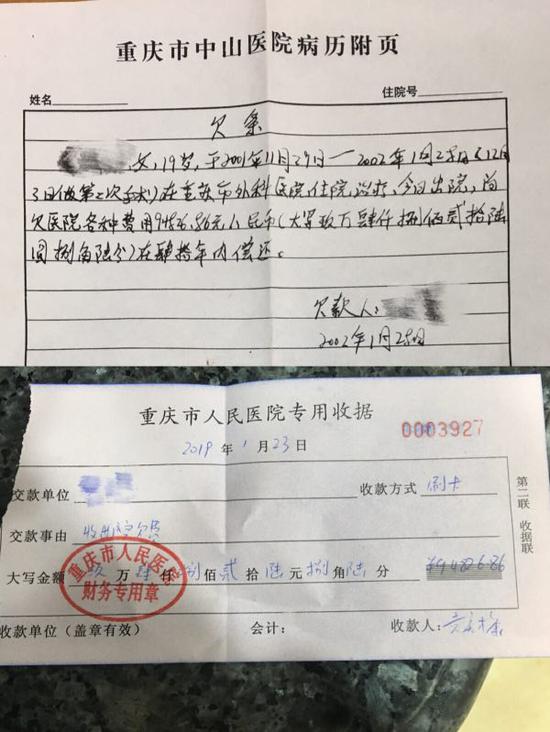 重庆市中山医院病历附页
姓名
住院号
欠条
女,19岁,于2001年11月29日一2002年1月25日(12月
3日做第二次手术)在重庆市外科医院住院治疗,今日出院,尚
欠医院各种费用94826.86元人民币(大写玖万肆仟捌佰贰拾陆
圆捌角陆分)在肆拾年内偿还。
欠款人:
2002年1月25日
重庆市人民医院专用收据
0003927
2019年1月23日
交款单位
收款方式 刷卡
交款事由 收出院欠费
大写金额 玖万肆仟捌佰贰拾陆元捌角陆分 ¥94826.86
重庆市人民医院
财务专用章
收款单位(盖章有效) 会计: 收款人:
第二联 收据联